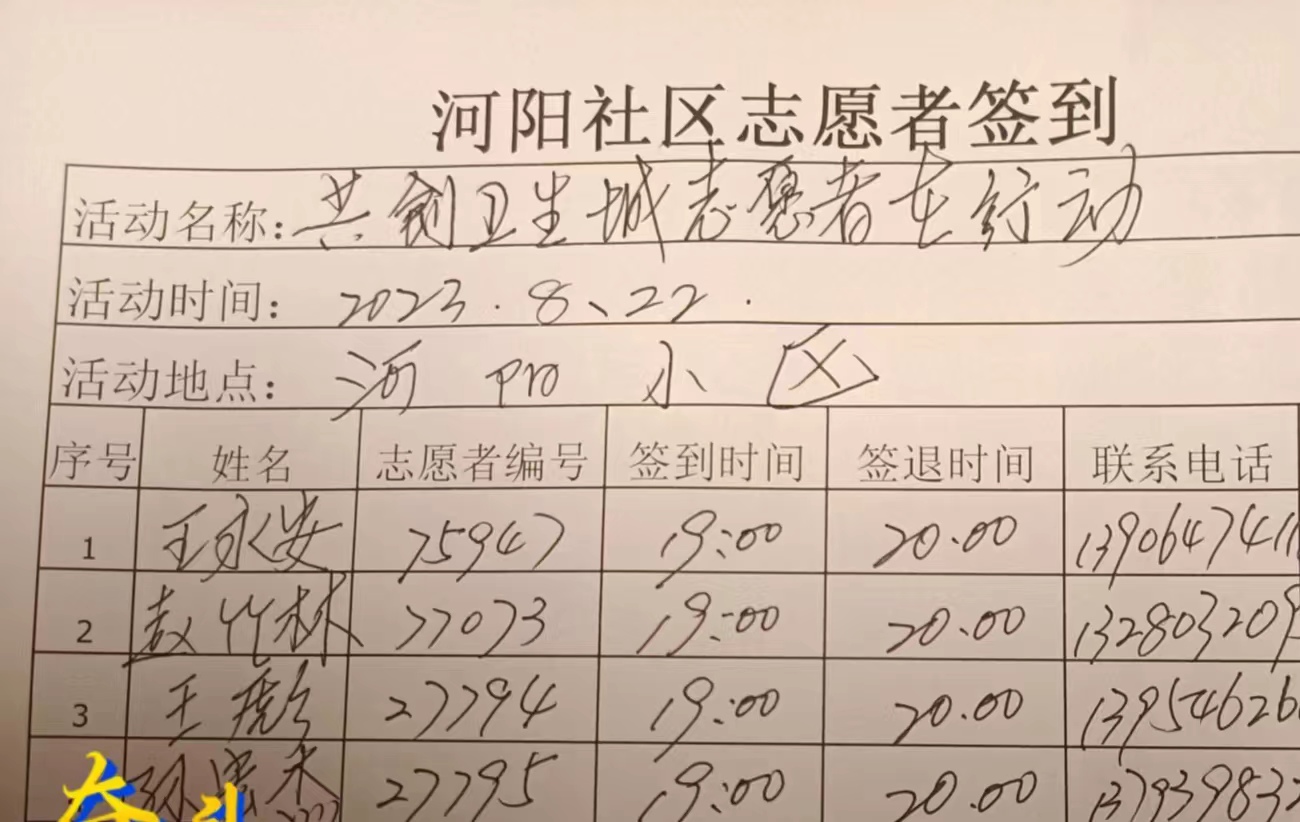 河阳社区志愿者签到
活动名称：共创卫生城志愿者在行动
活动时间：2023.8、22.
活动地点：河阳小区
序号 姓名 志愿者编号 签到时间 签退时间 联系电话
1 王永安 75947 19:00 20.00 1390647411
2 赵竹林 77073 19:00 20.00 132803209
3 王 27794 19:00 20.00 13954626
孙 27795 19:00 20.00 137939832
奋斗